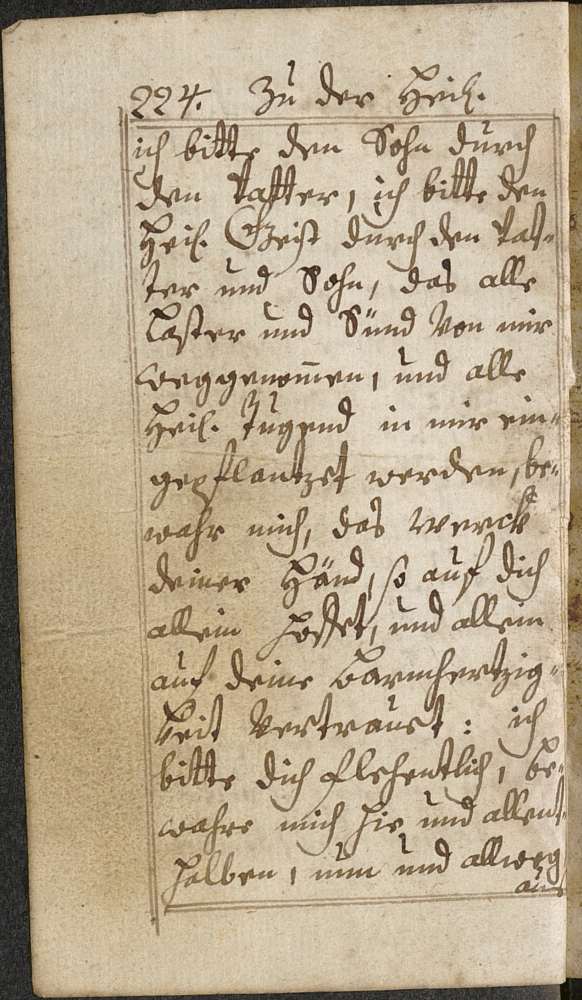 224. Zu der Heil.
ich bitte den Sohn durch
den Vatter, ich bitte den
Heil. Geist durch den Vat-
ter und Sohn, das alle
Laster und Sünd von mir
weggenom̄en, und alle
Heil. Tugend in mir ein-
gepflantzet werden, be-
wahr mich, das werck
deiner Händ, so auf dich
allein hoffet, und allein
auf deine barmhertzig-
keit vertrauet: ich
bitte dich flehentlich, be-
wahre mich hie und allent-
halben, nun und allweg
aus